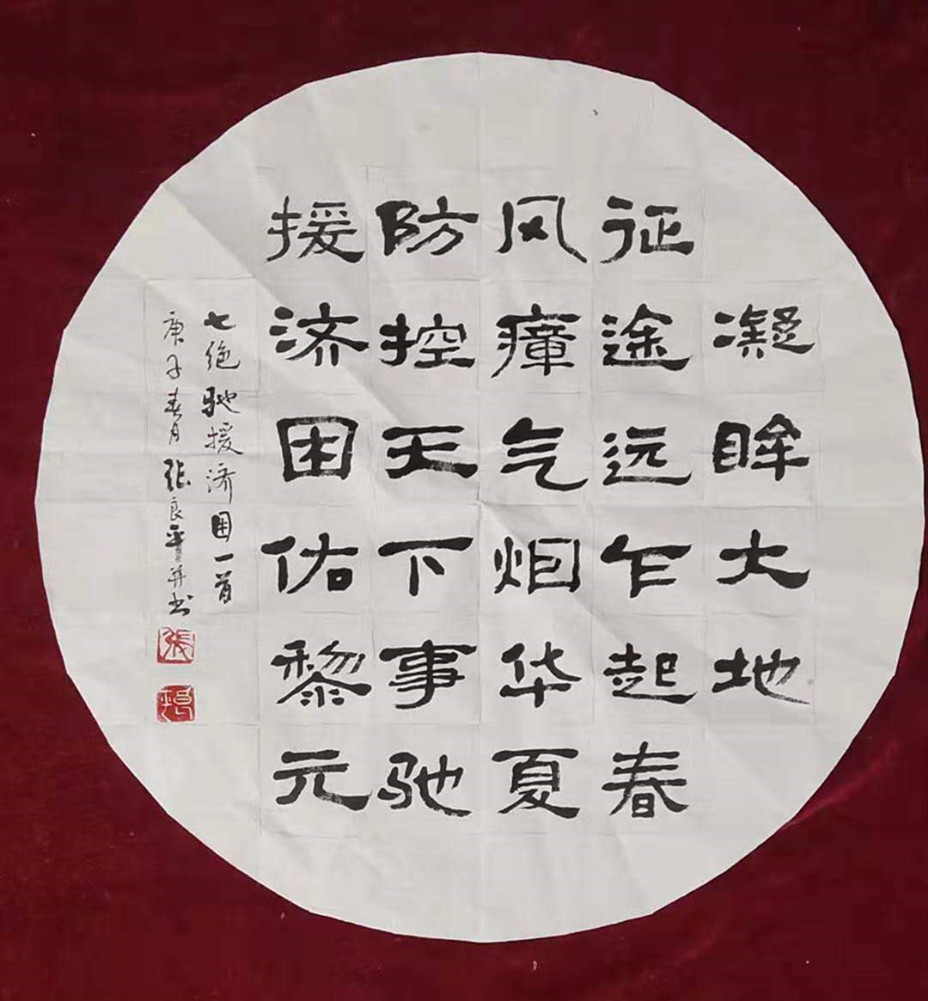 凝眸大地
征途远乍起春
风瘴气烟华夏
防控天下事驰
援济困佑黎元
七绝驰援济困一首
庚子春月张良平并书
張